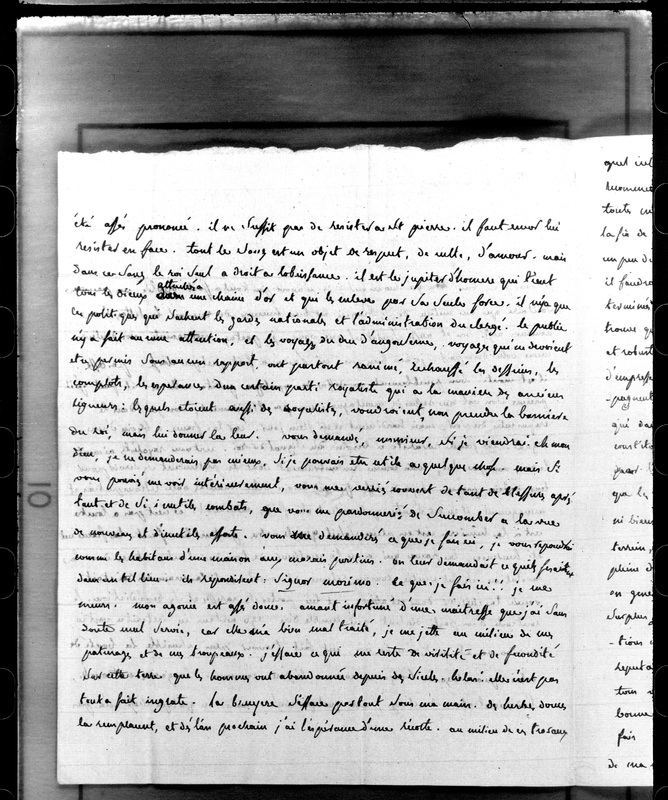 été assés prononcé. il ne suffit pas de resister a st pierre. il faut encor lui
resister en face. tout le sang est un objet de respect, de culte, d'amour. mais
dans ce sang le roi seul a droit a l'obéissance. il est le jupiter d'homere qui tient
attachés
tous les dieux une chaine d'or et qui les enleve par sa seule force. il n'y a que
les politiques qui sachent les gardes nationales et l'administration du clergé. le public
n'y a fait aucune attention, et les voyages du duc d'angouleme, voyages qui ne devoient
etre permis sous aucun rapport, ont partout ranimé, rechauffé les desseins, les
complots, les esperances d'un certain parti royaliste qui a la maniere des anciens
ligueurs: lesquels etoient aussi des royalistes, voudroient non prendre la banniere
du roi, mais lui donner la leur. vous demandés, monsieur, si je viendrai. eh mon
dieu, je ne demanderais pas mieux, si je pouvais etre utile a quelque chose. mais si
vous pouviés me voir interieurement, vous me verriés couvert de tant de blessures aprés
tant et de si inutiles combats, que vous me pardonneriés de succomber a la vue
de nouveaux et d'inutiles efforts. vous me demanderés ce que je fais ici, je vous repondrai
comme les habitans d'une maison aux marais pontins. on leur demandait ce qu'ils faisaient
dans un tel lieu. ils repondirent: signor morimo. ce que je fais ici!! je me
meurs. mon agonie est assés douce. amant infortuné d'une maitresse que j'ai sans
doute mal servie, car elle m'a bien maltraité, je me jette au milieu de mes
paturages et de mes troupeaux. j'efface ce qui me reste de virilité et de fecondité
sur cette terre que les hommes ont abandonnée depuis des siecles. helas! elle n'est pas
tout a fait ingrate. la bruyere s'efface partout sous ma main. des herbes douces
la remplacent, et dés l'an prochain j'ai l'espérance d'une récolte. au milieu de ces travaux
quel
recommen
toutes
la fin de
un peu d
il faudro
terminé
trouve q
et robust
d'empresse
pagnent
qui dan
constit
pour l
que les
ni bien
terrein,
pleine d
en gener
surplus
-tions
reput
tion
bonne
fais
de ma
10